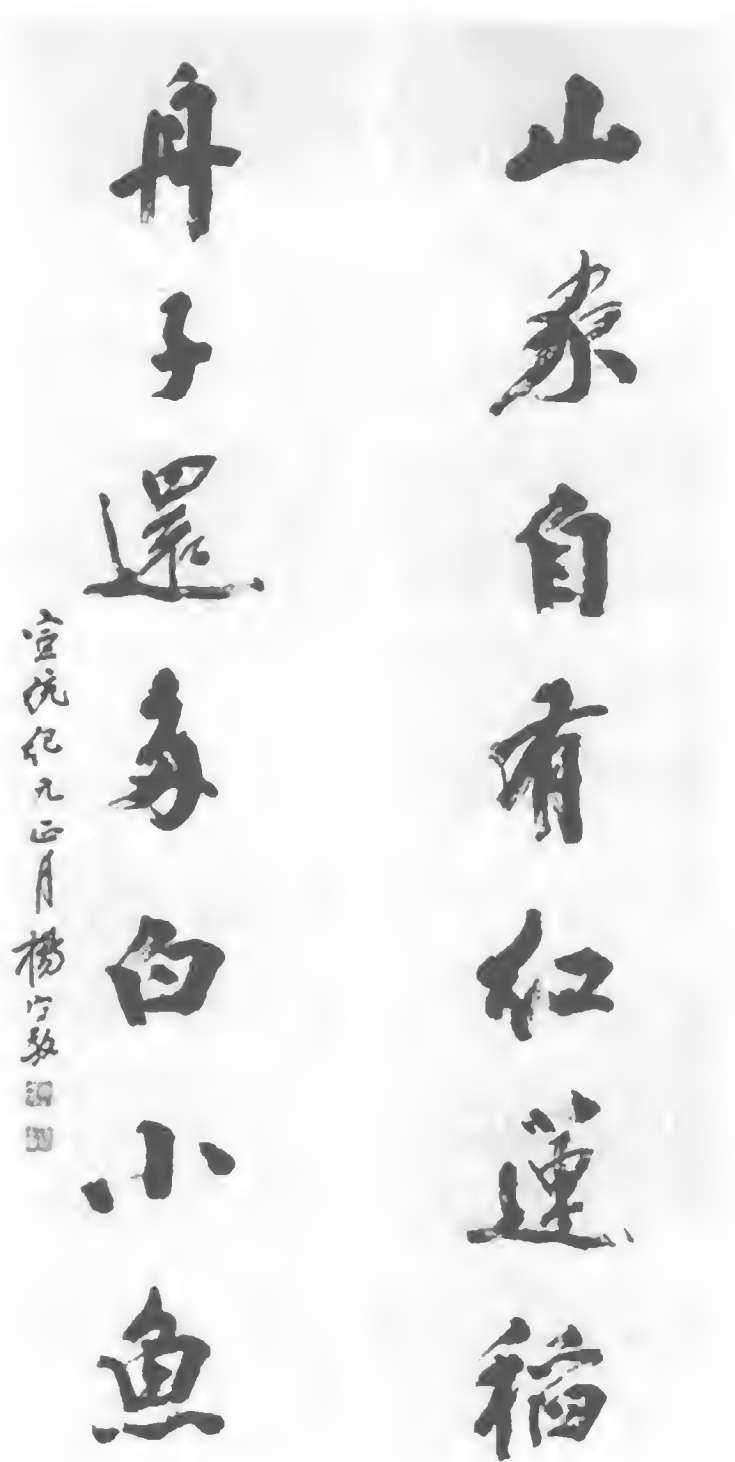 山家自有紅蓮稻
舟子還多白小魚
宣統紀元正月楊守敬